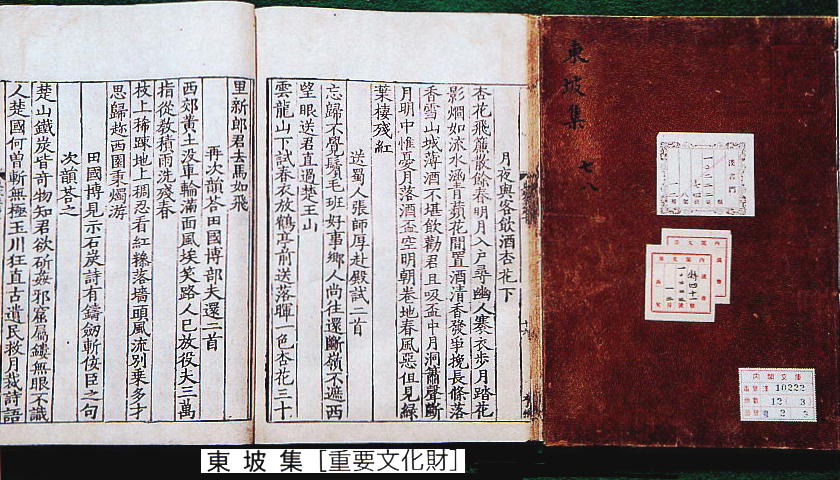 月夜與客飲酒杏花下
杏花飛簾散餘春明月入户尋幽人褰衣歩月踏花
影烱如流水涵青蘋花間置酒清香發爭挽長條落
香雪山城薄酒不堪飲勸君且吸盃中月洞簫聲斷
月明中惟憂月落酒盃空明朝卷地春風惡但見緑
葉棲殘紅
送蜀人張師厚赴殿試二首
忘歸不覺鬢毛斑好事鄉人尚往還斷嶺不遮西
望眼送君直過楚王山
雲龍山下試春衣放鶴亭前送落暉一色杏花三十
里新郎君去馬如飛
再次韻荅田國博部夫還二首
西郊黄土没車輪滿面風埃笑路人已放役夫三萬
指從教積雨洗殘春
枝上稀踈地上稠忍看紅糝落墻頭風流别乗多才
思歸趂西園秉燭游
田國博見示石炭詩有鑄劒斬佞臣之句
次韻荅之
楚山鐵炭皆奇物知君欲斫姦邪窟屬鏤無眼不識
人楚國何曽斬無極玉川狂直古遺民救月裁詩語
東坡集 七八
漢書門
内閣文庫
番號 漢 10222
冊數 12 (3)
函號 2 3
東坡集 [重要文化財]